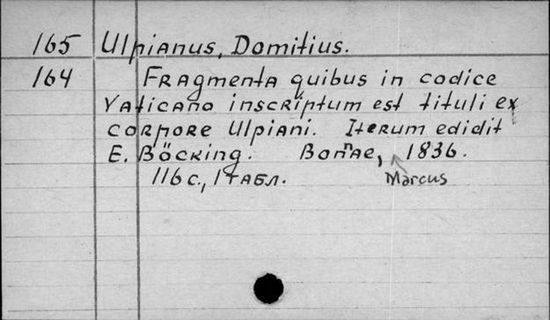 165 Ulpianus, Domitius.
164 Fragmenta quibus in codice
Vaticano inscriptum est tituli ex
corpore Ulpiani. Iterum edidit
E. Böcking. Bonnae, 1836.
116 с., 1 табл. Marcus